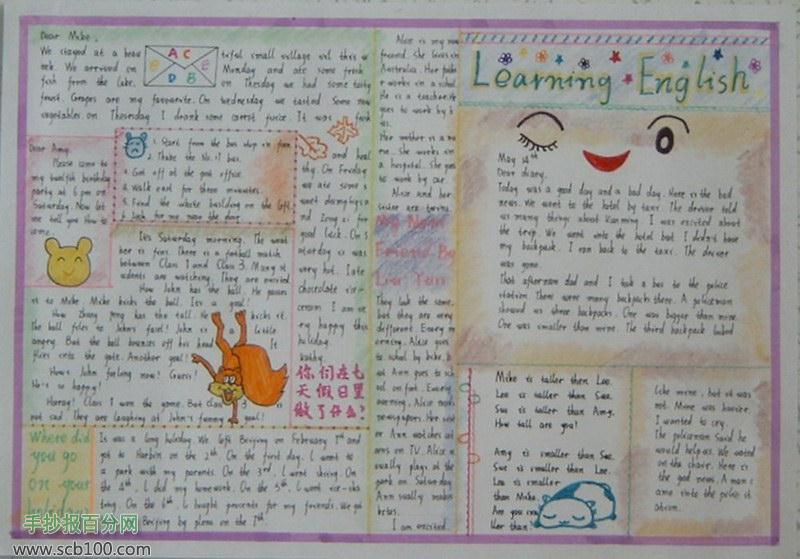 Learning English
Dear Mike,
We stayed at a beau tiful small village
A C
D B
We arrived on Monday and ate some fresh
fish from the lake. On Thesday we had some tasty
fruit. Grapes are my favourite. On wednesday we tasted some
vegetables on Thuresday I drank some carrot juice. It was fresh
and heal
thy. On Friday
we ate some s
Dear Amy,
Please come to
my twelfth birthday
party at 6 pm on
Saturday. Now let
me tell you how to
come.
1. Start from the bus stop in
2. Thake the No.17 bus.
3. Get off at the post office.
4. Walk east for three minutes.
5. Find the white building on the left.
6. Look for me near the door.
It's Saturday morning. The weat
her is fine. There is a football match
between Class 1 and Class 3. Many st
udents are watching. They are excited
Now John has the ball. He passes
it to Mike. Mike kicks the ball. It's a goal!
Now Zhang Peng has the ball. He kicks it.
The ball flies to John's face! John is a little
angry. But the ball bounces off his head. It
flies into the gate. Another goal!
How's John feeling now? Guess!
He's so happy!
Horray! Class 1 won the game. But Class 3 is
not sad. They are laughing at John's funny goal!
good luck. On S
aturday it was
very hot. I ate
chocolate ice-
cream I am ve
ry happy this
holiday.
你们在七
天假日里
做了什么?
Where did
you go
on your
It was a long holiday. We left Beijing on February 1st and
got to Harbin on the 2nd. On the first day, I went to
a park with my parents. On the 3rd, I went skiing. On
the 4th, I did my homework. On the 5th, I went ice-ska
ting. On the 6th, I bought presents for my friends. We got
Beijing by plane on the 7th.
Alice is my new
friend. She lives in
Australia. Her fathe
r works in a school.
He is a teacher.He
goes to work by b
us.
Her mother is a nur
se. She works in
a hospital. She goes
to work by car.
Alice and her
sister are twins.
My New
Friend
They look the same,
but they are very
different. Every m
orning, Alice goes
to school by bike, b
ut Ann goes to sch
ool on foot. Every
evening, Alice reads
newspapers. Her sist
er Ann watches cart
oons on TV. Alice us
ually plays at the
park on Saturday.
Ann usually makes
kites.
I am excited.
May 14th
Dear diary,
Today was a good day and a bad day. Here is the bad
news. We went to the hotel by taxi. The driver told
us many things about Kunming. I was excited about
the trip. We went into the hotel but I didn't have
my backpack. I ran back to the taxi. The driver
was gone.
That afternoon dad and I took a bus to the police
station. There were many backpacks there. A policeman
showed us three backpacks. One was bigger than mine.
One was smaller than mine. The third backpack looked
like mine, but it was
not. Mine was heavier.
I wanted to cry.
The policeman said he
would help us. We waited
on the chair. Here is
the good news. A man c
ame into the police st
ation.
Mike is taller than Lee.
Lee is taller than Sue.
Sue is taller than Amy.
How tall are you?
Amy is smaller than Sue.
Sue is smaller than Lee.
Lee is smaller
than Mike.
手抄报百分网
www.scb100.com